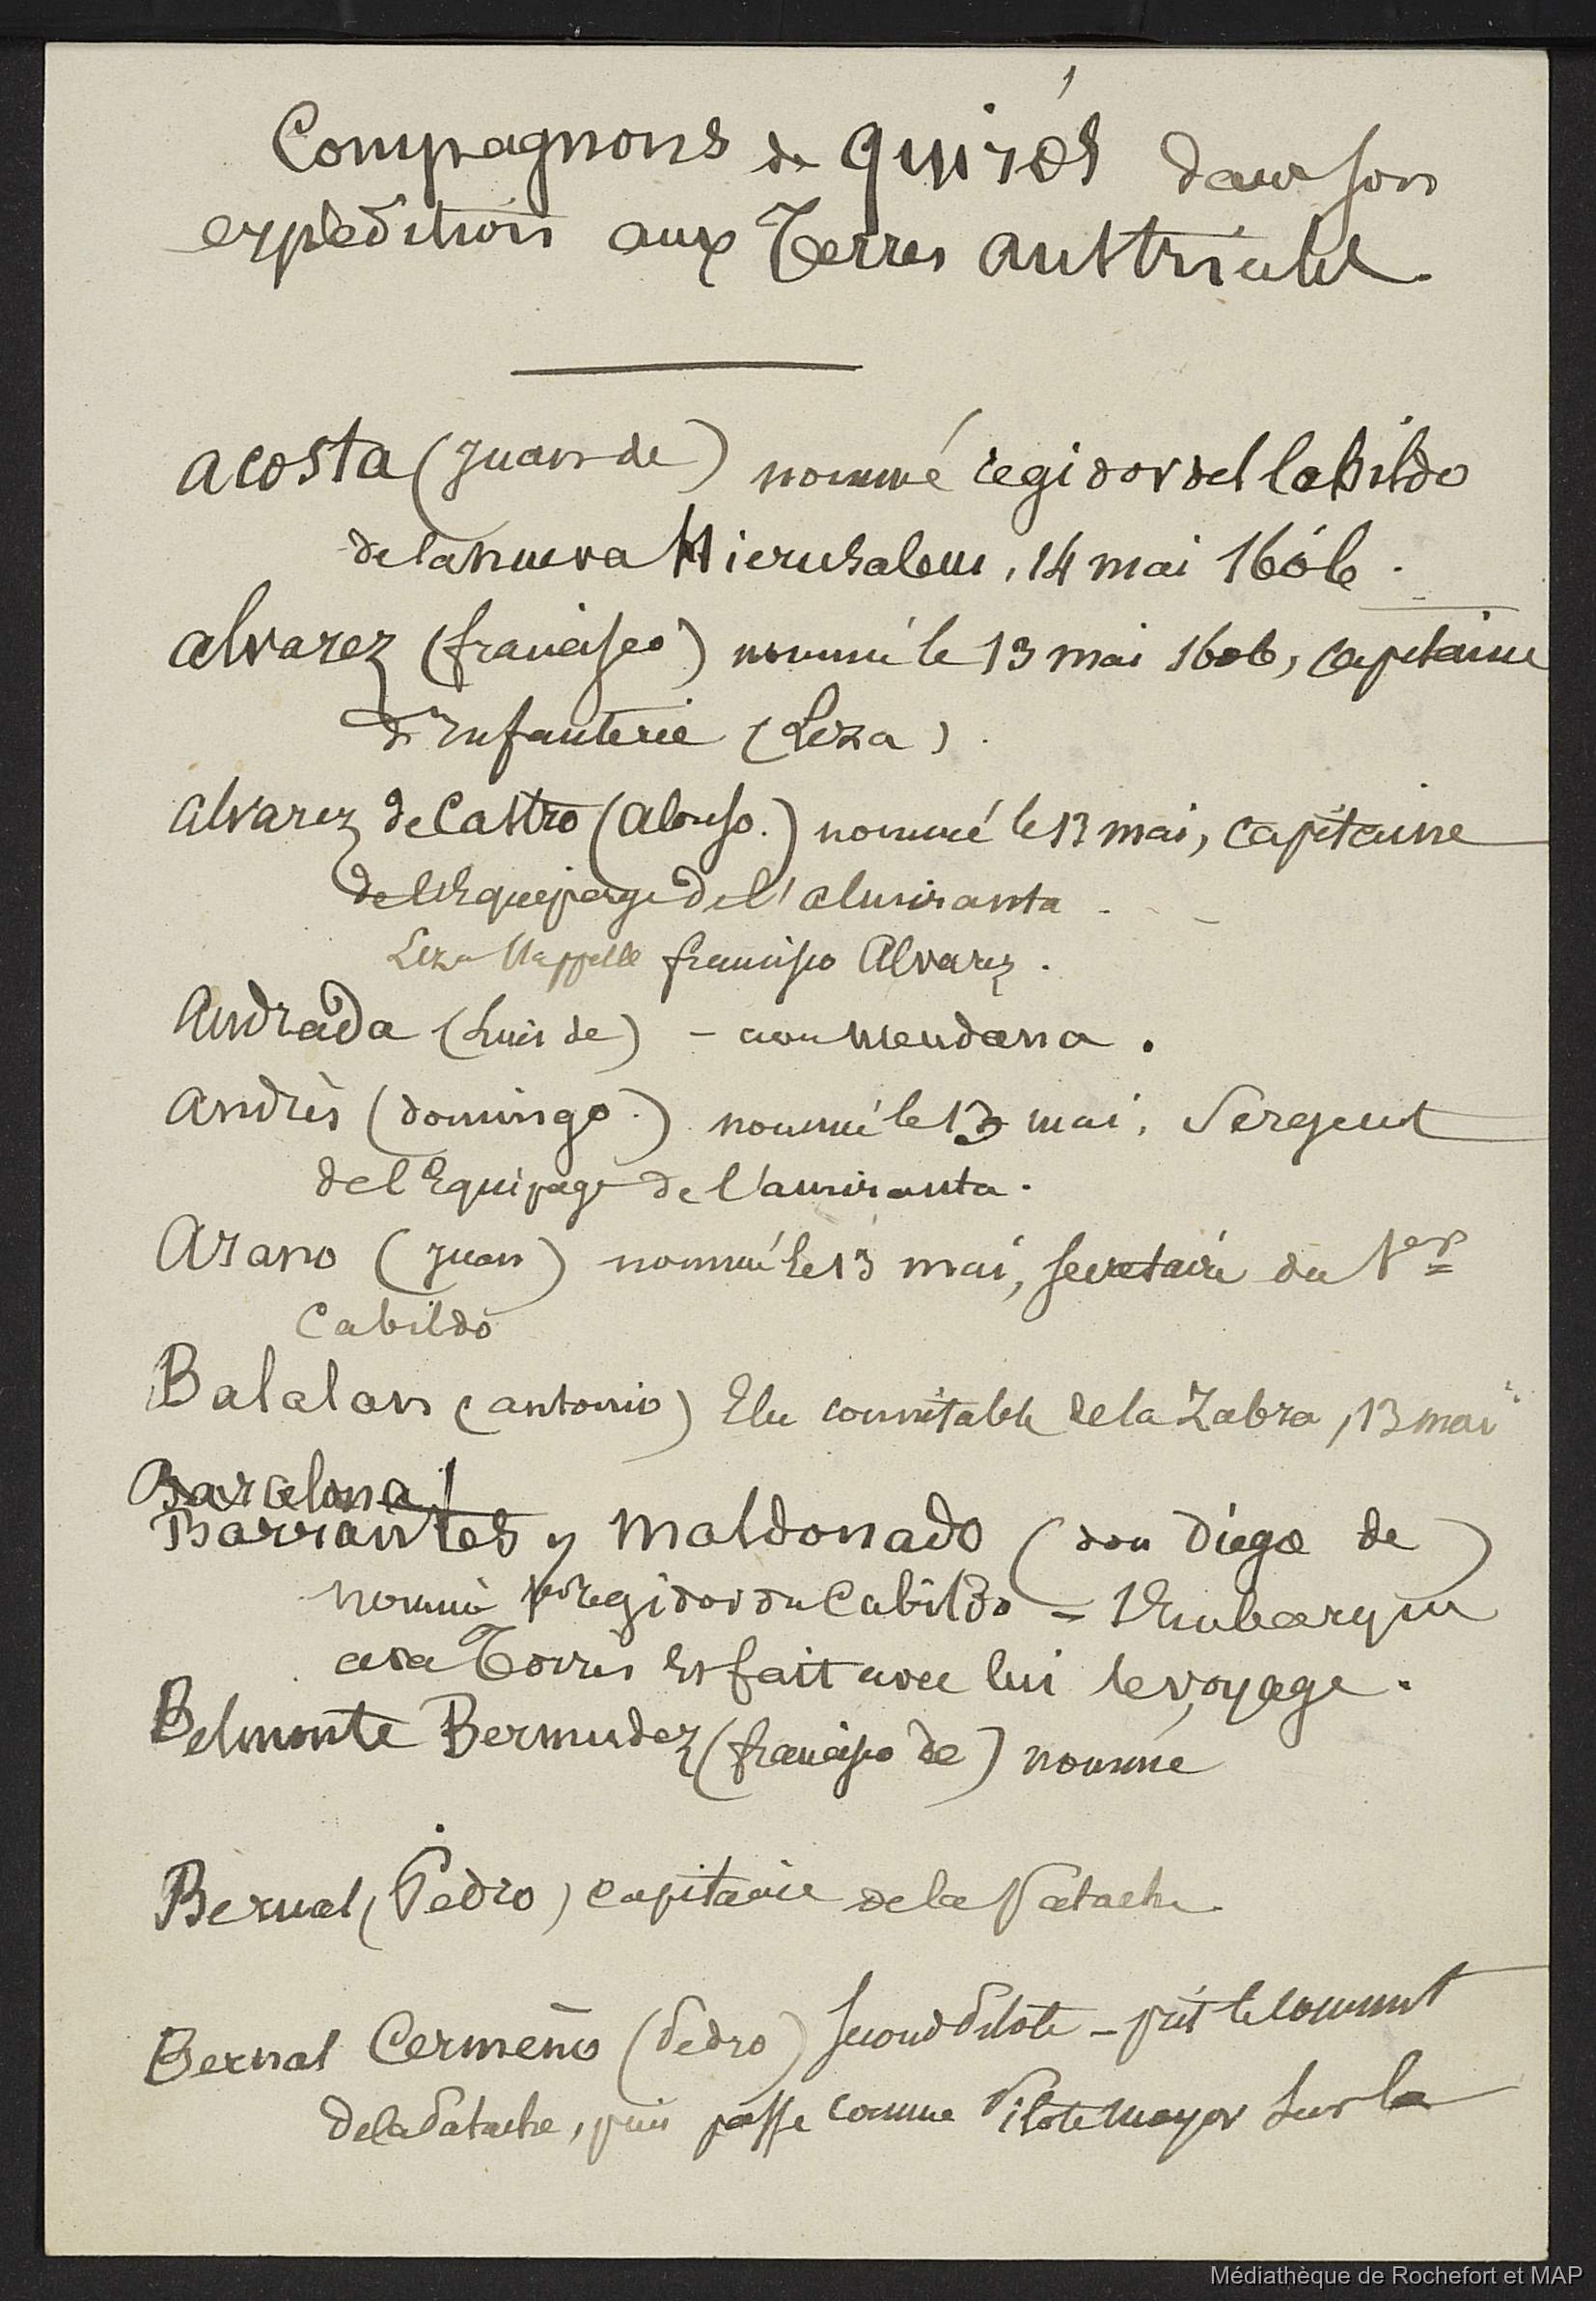 Compagnons de Quirós dans son
expédition aux Terres australes.
Acosta (Juan de) nommé regidor del Cabildo
de la nueva Hierusalem, 14 mai 1606.
Alvarez (francisco) nommé le 13 mai 1606, capitaine
d'Infanterie (Leza).
Alvarez de Castro (Alonso.) nommé le 13 mai, capitaine
de l'Equipage de l'almiranta.
Leza l'appelle francisco Alvarez.
Andrada (Luis de) - avec Mendana.
Andrès (domingo.) nommé le 13 mai, Sergent
de l'Equipage de l'amiranta.
Arano (Juan) nommé le 13 mai, secretaire du 1er
Cabildo
Balalan (antonio) Elu connetable de la Zabra, 13 mai
Barcelona
Barrantes y Maldonado (don Diego de)
nommé regidor du Cabildo = S'Embarque
avec Torres et fait avec lui le voyage.
Belmonte Bermudez (francisco de) nommé
Bernal (Pedro) capitaine de la Patache
Bernal Cermeño (Pedro) second Pilote - prit le commnt
de la Patache, puis passe comme Pilote mayor sur la
Médiathèque de Rochefort et MAP